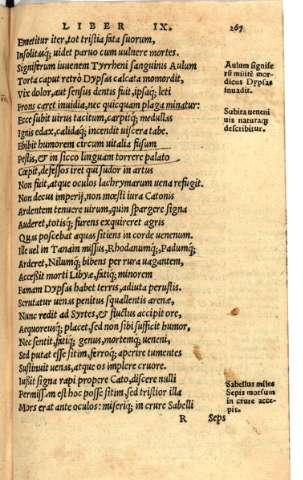 LIBER IX. 267
Emetitur iter, tot tristia fata suorum,
Insolitasq; uidet paruo cum uulnere mortes.
Signiferum iuuenem Tyrrheni sanguinis Aulum
Torta caput retrò Dypsas calcata momordit,
Vix dolor, aut sensus dentis fuit, ipsaq; leti
Frons caret inuidia, nec quicquam plaga minatur:
Ecce subit uirus tacitum, carpitq; medullas
Ignis edax, calidaq; incendit uiscera tabe.
Ebibit humorem circum uitalia fusum
Pestis, & in sicco linguam torrere palato
Cœpit, defessos iret qui sudor in artus
Non fuit, atque oculos lachrymarum uena refugit.
Non decus imperij, non mœsti iura Catonis
Ardentem tenuere uirum, quin spargere signa
Auderet, totisq; furens exquireret agris
Quas poscebat aquas sitiens in corde uenenum.
Ille uel in Tanain missus, Rhodanumq;, Padumq;
Arderet, Nilumq; bibens per rura uagantem,
Accessit morti Libyæ, fatiq; minorem
Famam Dypsas habet terris, adiuta perustis.
Scrutatur uenas penitus squallentis arenæ,
Nunc redit ad Syrtes, & fluctus accipit ore,
Aequoreusq; placet, sed non sibi sufficit humor,
Nec sentit, fatiq; genus, mortemq; ueneni,
Sed putat esse sitim, ferroq; aperire tumentes
Sustinuit uenas, atque os implere cruore.
Iussit signa rapi propere Cato, discere nulli
Permissum est hoc posse sitim, sed tristior illa
Mors erat ante oculos: miseriq; in crure Sabelli
R Seps
Aulum signife
rũ militẽ mor
dicus Dypsas
inuadit.
Subita ueneni
uis naturaq;
describitur.
Sabellus miles
Sepis morsum
in crure acce
pit.